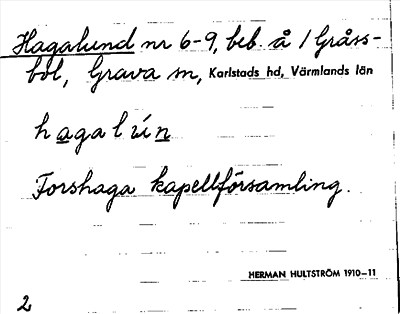 Hagalund nr 6-9, beb. å 1 Gråss-
bol, Grava sn, Karlstads hd, Värmlands län
hagalún
Forshaga kapellförsamling.
HERMAN HULTSTRÖM 1910-11
2